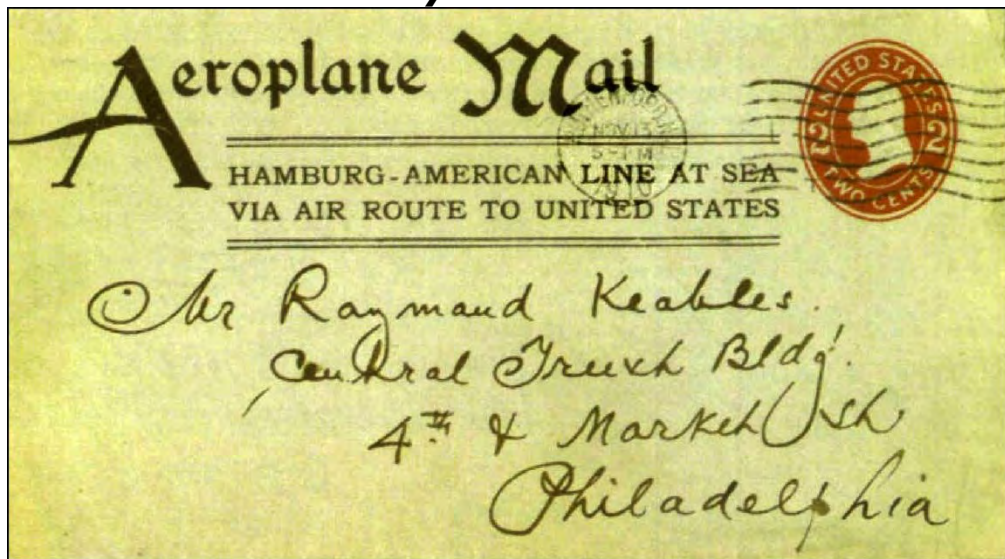 Aeroplane Mail
HAMBURG-AMERICAN LINE AT SEA
VIA AIR ROUTE TO UNITED STATES
NOV 13
5-PM
1910
UNITED STATES
2 2
TWO CENTS
Mr Raymond Keables.
Central Trust Bldg.
4th & Market St
Philadelphia